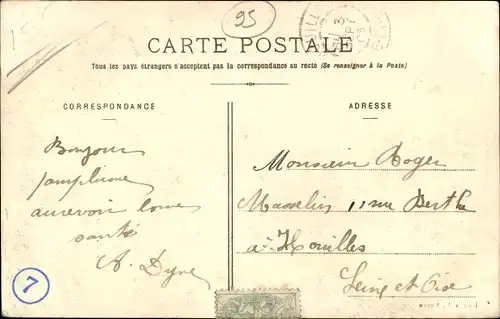 95
CARTE POSTALE
Tous les pays étrangers n'acceptent pas la correspondance au recto (Se renseigner à la Poste)
CORRESPONDANCE
ADRESSE
Bonjour
aurevoir bonne
santé
A. Dyne
Monsieur Roger
Masselin 11 rue Berthe
à Houilles
Seine et Oise
7